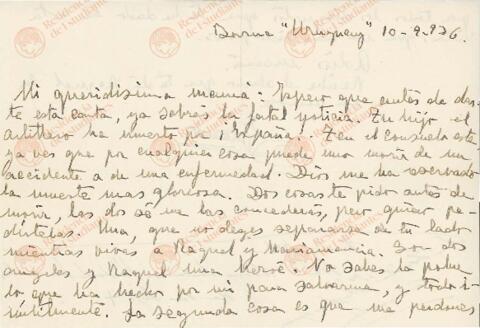 Barco "Uruguay" 10-9-936.
Mi queridisima mamá: Espero que antes de dar-
te esta carta, ya sabrás la fatal noticia. Tu hijo el
artillero ha muerto por ¡España!. Ten el consuelo este
ya ves que por cualquier cosa puede uno morir de un
accidente o de una enfermedad. Dios me ha reservado
la muerte mas gloriosa. Dos cosas te pido antes de
morir, las dos sé me las concederás, pero quiero pe-
dirtelas. Una, que no dejes separarse de tu lado
mientras vivas a Raquel y Mariamancia. Son dos
angeles y Raquel una heroe. No sabes la pobre
lo que ha hecho por mi para salvarme, y todo i-
nutilmente. La segunda cosa es que me perdones
Residencia de Estudiantes